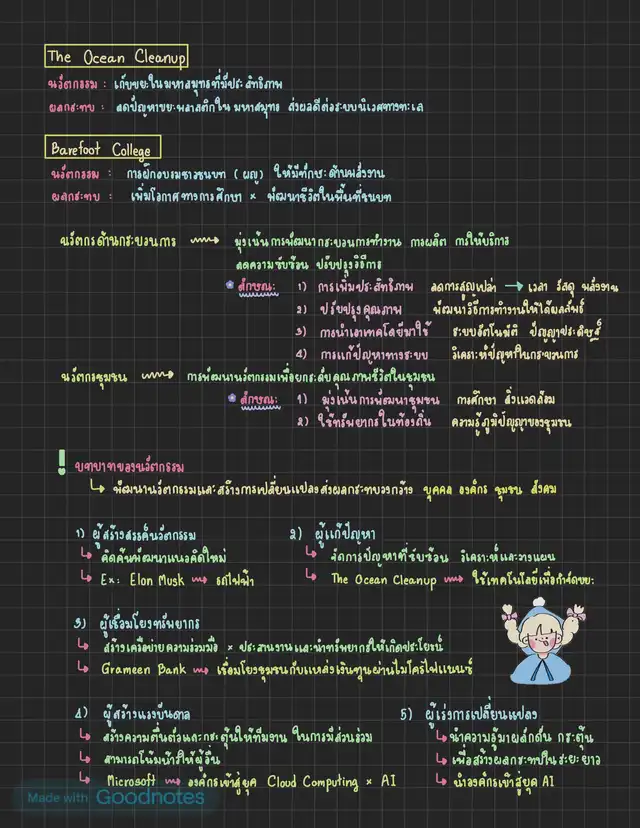 The Ocean Cleanup
นวัตกรรม : เก็บขยะในมหาสมุทรที่มีประสิทธิภาพ
ผลกระทบ : ลดปัญหาขยะพลาสติกในมหาสมุทร ส่งผลดีต่อระบบนิเวศทางทะเล
Barefoot College
นวัตกรรม : การฝึกอบรมชาวชนบท ( ผญ) ให้มีทักษะด้านพลังงาน
ผลกระทบ : เพิ่มโอกาสทางการศึกษา × พัฒนาชีวิตในพื้นที่ชนบท
นวัตกรด้านกระบวนการ → มุ่งเน้นการพัฒนากระบวนการทำงาน การผลิต การให้บริการ
ลดความซับซ้อน ปรับปรุงวิธีการ
ลักษณะ 1) การเพิ่มประสิทธิภาพ ลดการสูญเปล่า → เวลา วัสดุ พลังงาน
2) ปรับปรุงคุณภาพ พัฒนาวิธีการทำงานให้ได้ผลลัพธ์
3) การนำเอาเทคโนโลยีมาใช้ ระบบอัตโนมัติ ปัญญาประดิษฐ์
4) การแก้ปัญหาทางระบบ วิเคราะห์ปัญหาในกระบวนการ
นวัตกรชุมชน → การพัฒนานวัตกรรมเพื่อยกระดับคุณภาพชีวิตในชุมชน
ลักษณะ 1) มุ่งเน้นการพัฒนาชุมชน การศึกษา สิ่งแวดล้อม
2) ใช้ทรัพยากรในท้องถิ่น ความรู้ภูมิปัญญาของชุมชน
! บทบาทของนวัตกรรม
↳ พัฒนานวัตกรรมและสร้างการเปลี่ยนแปลงส่งผลกระทบวงกว้าง บุคคล องค์กร ชุมชน สังคม
1) ผู้สร้างสรรค์นวัตกรรม
↳ คิดค้นพัฒนาแนวคิดใหม่
↳ Ex: Elon Musk → รถไฟฟ้า
2) ผู้แก้ปัญหา
↳ จัดการปัญหาที่ซับซ้อน วิเคราะห์และวางแผน
↳ The Ocean Cleanup → ใช้เทคโนโลยีเพื่อกำจัดขยะ
3) ผู้เชื่อมโยงทรัพยากร
↳ สร้างเครือข่ายความร่วมมือ × ประสานงานและนำทรัพยากรให้เกิดประโยชน์
↳ Grameen Bank → เชื่อมโยงชุมชนกับแหล่งเงินทุนผ่านไมโครไฟแนนซ์
4) ผู้สร้างแรงบันดาล
↳ สร้างความตื่นตัวและกระตุ้นให้ทีมงาน ในการมีส่วนร่วม
↳ สามารถโน้มน้าวให้ผู้อื่น
↳ Microsoft → องค์กรเข้าสู่ยุค Cloud Computing × AI
5) ผู้เร่งการเปลี่ยนแปลง
↳ นำความรู้มาผลักดัน กระตุ้น
↳ เพื่อสร้างผลกระทบในระยะยาว
↳ นำองค์กรเข้าสู่ยุค AI
Made with Goodnotes